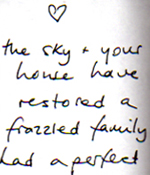 the sky + your
house have
restored a
frazzled family
had a perfect